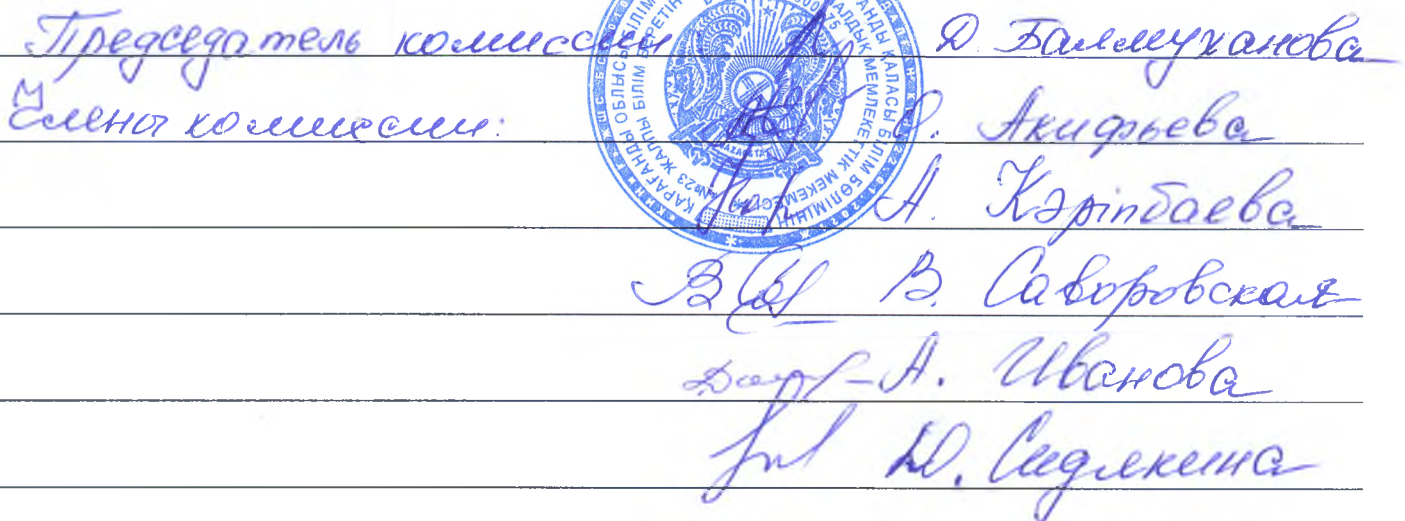 Председатель комиссии Д. Балмуханова
Члены комиссии: О. Акифьева
А. Кәріпбаева
В. Саворовская
А. Иванова
Ю. Сидякина
ҚАРАҒАНДЫ ОБЛЫСЫ БІЛІМ
ҚАРАҒАНДЫ ҚАЛАСЫ БІЛІМ БӨЛІМІНІҢ
№23 ЖАЛПЫ БІЛІМ БЕРЕТІН
МЕМЛЕКЕТТІК МЕКЕМЕСІ